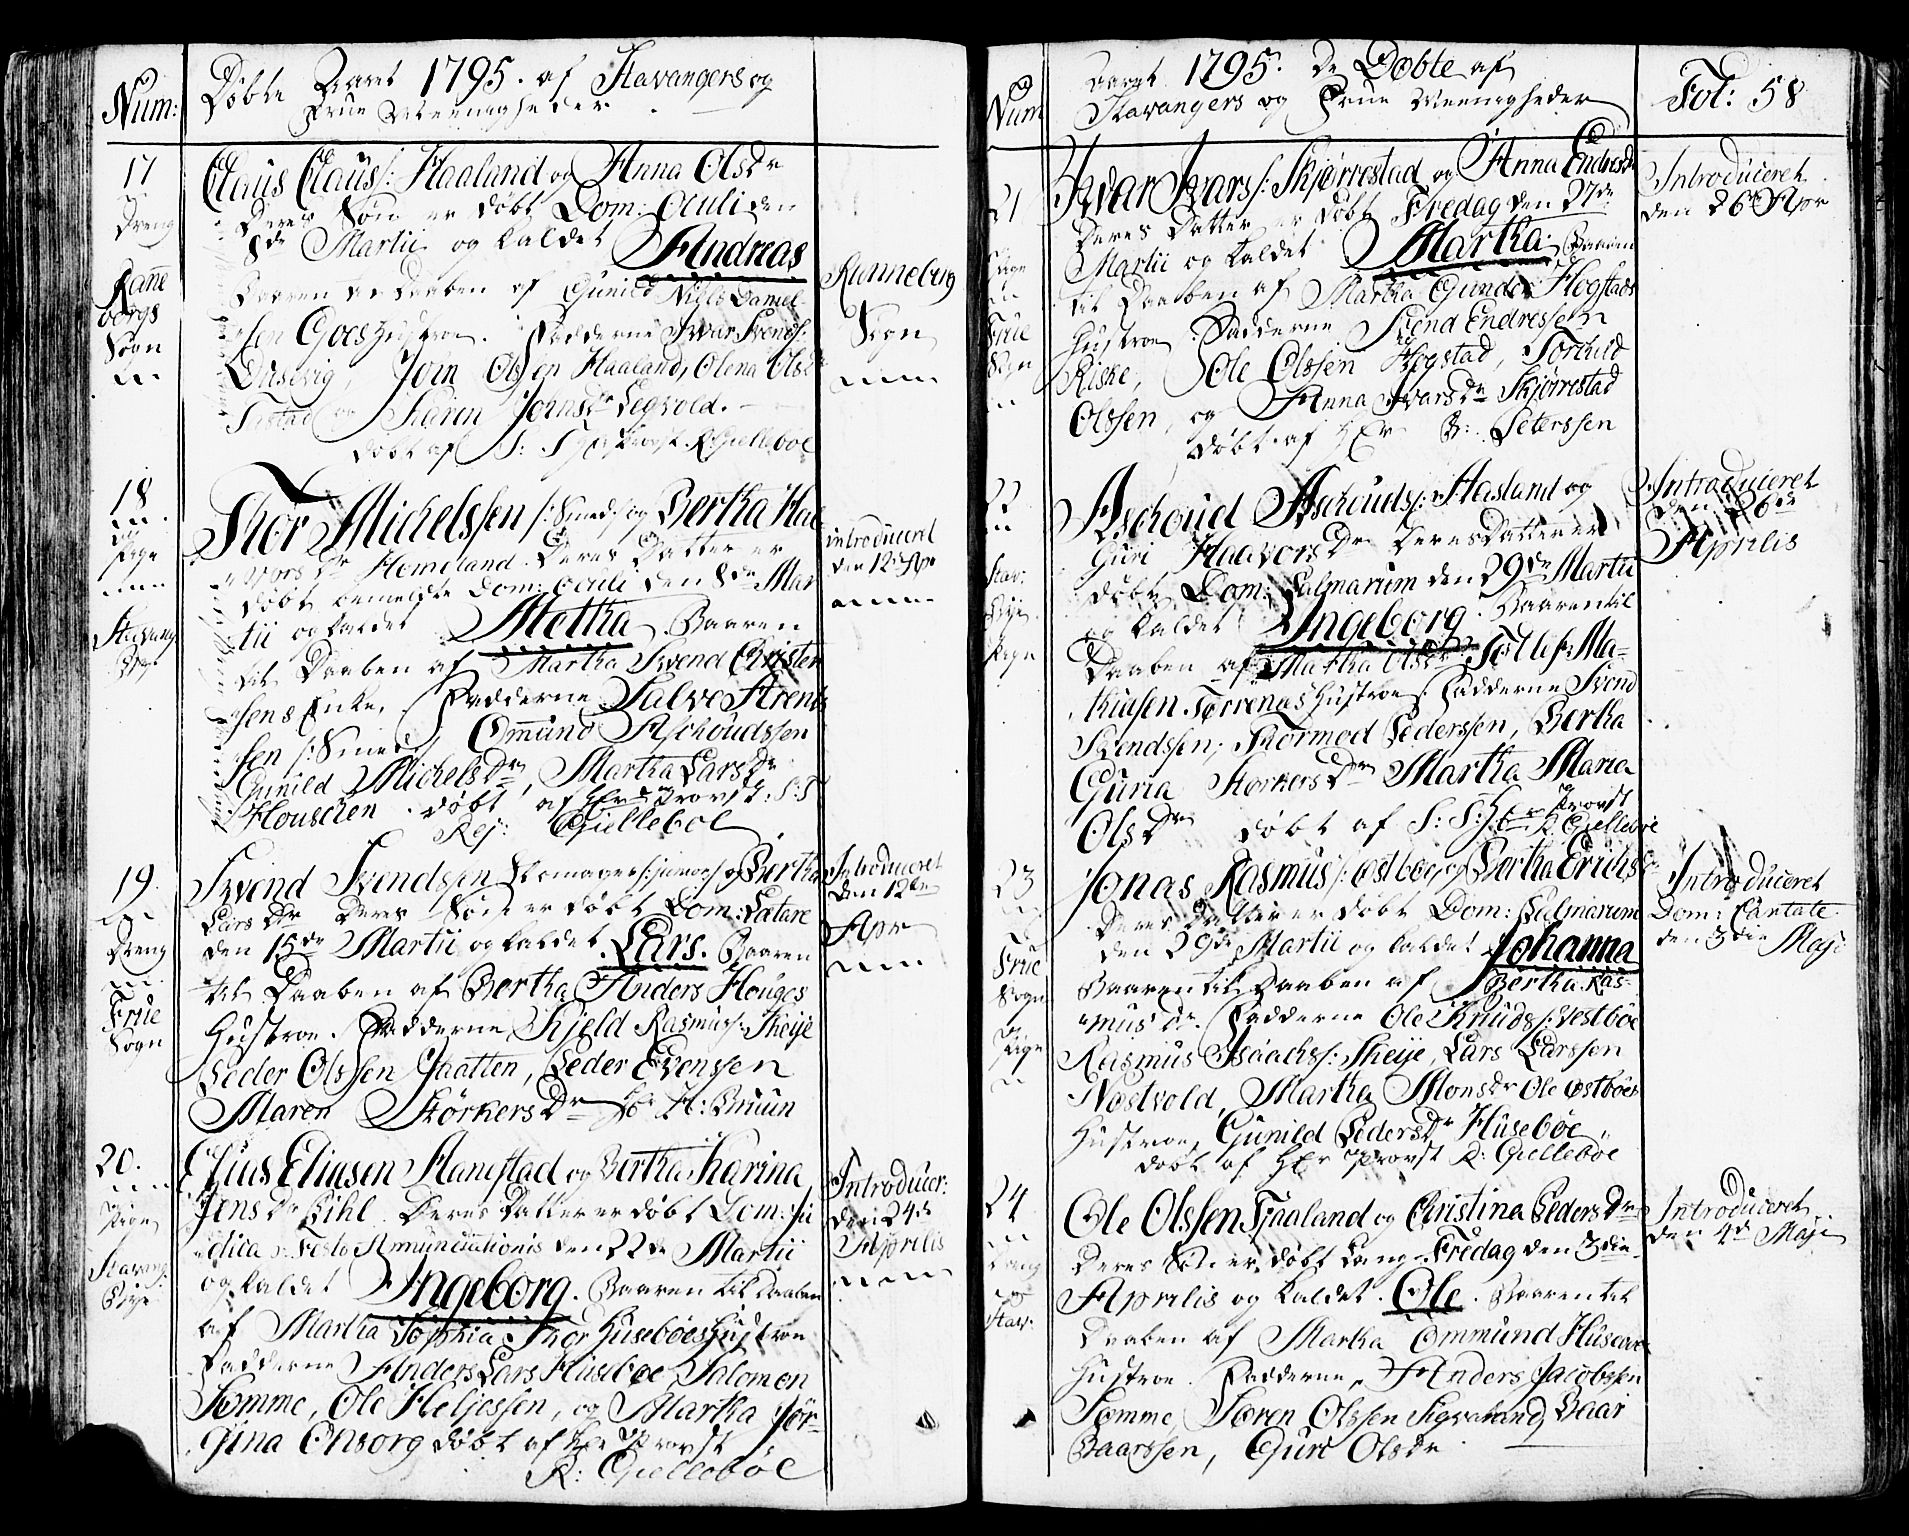 Num:
Döbte Aaret 1795. af Stavangers og
Frue Meenigheder
17
Dreng
Claus Clauss: Haaland og Anna OlsDr
Deres Søn er døbt Dom: Oculi den
8de Martii og kaldet Andreas
Baaren til Daaben af Gunild Niels Daniel-
sen Goes Hustroe. Fadderne Ivar Svends:
Jøin Olssen Haaland, Olena Ols
og Karen JørnsDr Segvold.
døbt af S: S: Hr Provst R: Gielleböe
Rañe
bergs
Sogn
Renneberg
Sogn
18
Pige
Stavang
Thor Michelssen /:Smed:/ og Bertha Haa
vorsDr Hemeland. Deres Datter er
døbt bemeldte Dom: Oculi den 8de Mar
tii og kaldet Metha. Baaren
til Daaben af Martha Svend Christen
sens Enke, Fadderne Salve Arent
sen /:Smed:/ Omund Aschoudssen
Gunild MichelsDr, Martha LarsDr
Houschen. døbt af Hr Provst: S: T
Rej: Gielleboe
introduceret
den 12te Apr
19.
Dreng
Frue
Sogn
Svend Svendsen Skomager og Bertha
LarsDr Deres Søn er døbt Dom: Lætare
den 15de Martii og kaldet Lars. Baaren
til Daaben af Bertha Anders Houges
Hustroe. Fadderne Kjeld Rasmuss: Skeije
Peder Olssen Jaatten, Peder Evenssen
Maren StörkersDr Hr A: Bruun
Introduceret
den 12te
Apr
20.
Pige
Stavang:
Bye
Elius Eliusen Hanestad og Bertha Karina
JensDr Bihl. Deres Datter er døbt Dom: Ju
dica: Festo Annunciationis den 22de Martii
og kaldet Ingeborg. Baaren til Daaben
af Martha Sophia Thor Huseböes Hustroe
Fadderne Anders Lars Huseboe Salomon
Somme, Ole Heljessen, og Martha Jör-
gina Ensorg døbt af Hr Provst
R: Gielleböe
Introducer:
den 24de
Aprilis
Num
Aaret 1795. De Döbte af
Stavangers og Frue Meenigheder
Fol: 58
21
Pige
Frue
Sogn
Ivar Ivars: Skjørrestad og Anna EndresDr
Deres Datter er døbt Fredag den 27de
Martii og kaldet Martha. Baaren
til Daaben af Martha Gunder Hogstads
Hustroe. Fadderne Svend Endressen
Riske, Ole Olssen Hogstad, Torkild
Olssen, og Anna IvarsDr Skjørrestad
døbt af Hr B: Peterssen
Introduceret
den 26de Apr
22
Stav:
Bye
Pige
Aschoud Aschouds: Aasland og
Guri HaavorsDr Deres Datter er
døbt Dom: Palmarum den 29de Martii
og kaldet Ingeborg. Baaren til
Daaben af Martha Olss Tollef Ma-
thiesen Torrenas Hustroe. Fadderne Svend
Svendssen, Thormod Pederssen, Bertha
Guria StorkersDr Martha Maria
OlsDr døbt af S: S: Hr Provst
R: Gielleböe
Introduceret
den 26de
Aprilis
23
Frue
Sogn
Pige
Jonas Rasmus: Östboe og Bertha ErichsDr
Deres Datter er døbt Dom: Palmarum
den 29de Martii og kaldet Johanna
Baaren til Daaben af Bertha Ras-
musDr. Fadderne Ole Knuds: Vestböe
Rasmus Isaachs: Skeije, Lars Larssen
Nostvold, Martha MonsDr Ole Östböes
Hustroe, Gunild PedersDr Huseböe
døbt af Hr Provst R: Gielleböe
Introduceret
Dom: Cantate
den 3die Maji
24
Dreng
Stav:
Ole Olssen Haaland og Christina PedersDr
Deres Søn er døbt Lang-Fredag den 3die
Aprilis og kaldet Ole. Baaren til
Daaben af Martha Ommund Huseboes
Hustroe. Fadderne, Anders Jacobssen
Somme, Soren Olssen Sigvaland, Baar
Baarssen, Guri OlsDr
Introduceret
den 4de Maji